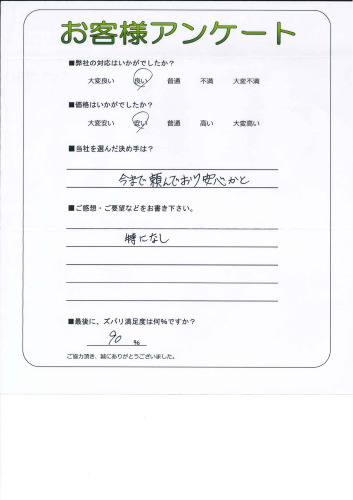 お客様アンケート
■弊社の対応はいかがでしたか？
大変良い 良い 普通 不満 大変不満
■価格はいかがでしたか？
大変安い 安い 普通 高い 大変高い
■当社を選んだ決め手は？
今まで頼んでおり安心かと
■ご感想・ご要望などをお書き下さい。
特になし
■最後に、ズバリ満足度は何%ですか？
90 %
ご協力頂き、誠にありがとうございました。